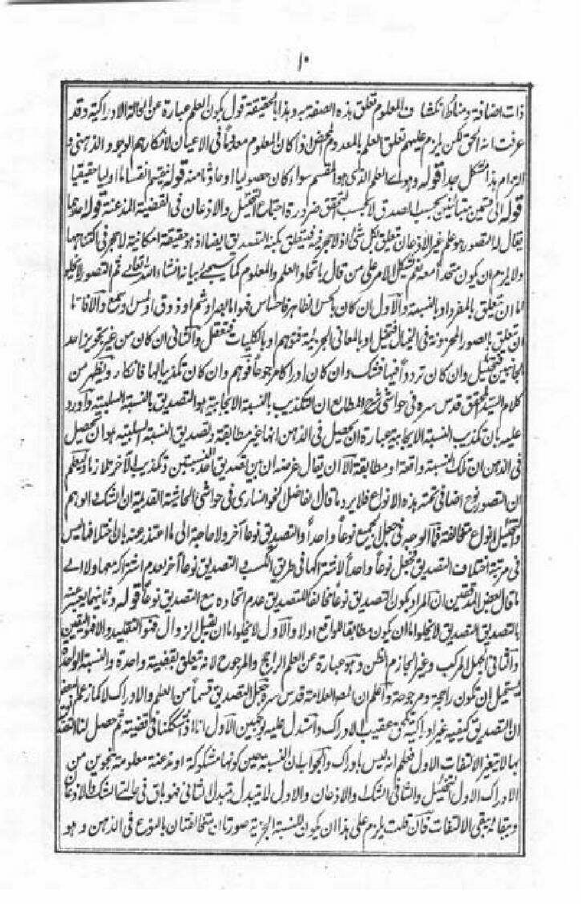 ١٠
ذات اضافة ومناط انكشاف المعلوم تعلق هذه الصفة به وهذا بالحقيقة قول بكون العلم عبارة عن الحالة الادراكية وقد
عرفت انه الحق لكن يلزم عليهم تعلق العلم بالمعدوم المحض اذا كان المعلوم معدوما فى الاعيان لانكارهم الوجود الذهنى و
التزام هذا مشكل جدا قوله وهو اى العلم الذى هو المقسم سواء كان حصوليا او حادثا منه قوله ينقسم انقساما اوليا حقيقيا
قوله الى قسمين متباينين بحسب الصدق لا بحسب التحقق ضرورة اجتماع التخييل والاذعان فى القضية المذعنة قوله احدهما
يقال له التصور هو علم غير الاذعان تعلق بكل شئ اذ لا حجر فيه فيتعلق بكنه التصديق ايضا اذ هو حقيقة امكانية لا حجر فى اكتناهها
ولا يلزم ان يكون متحدا معه نعم يشكل الامر على من قال باتحاد العلم والمعلوم كما سيجئ بيانه انشاء الله تعالى ثم التصور
اما ان تعلق بالمفرد او بالنسبة والاول ان كان بالحس الظاهر فاحساس فهو اما ابصار او شم او ذوق او لمس او سمع والا فاما
ان تعلق بالصور المخزونة فى الخيال فتخيل او بالمعانى الجزئية فتوهم او بالكليات فتعقل والثانى ان كان من غير تجويز احد
الجانبين فتخييل وان كان ترددا فيها فشك وان كان ادراكا مرجوحا فوهم وان كان تكذيبا لها فانكار ويظهر من
كلام السيد المحقق قدس سره فى حواشى شرح المطالع ان التكذيب بالنسبة الايجابية هو التصديق بالنسبة السلبية واورد
عليه بان تكذيب النسبة الايجابية عبارة ان يحصل فى الذهن انها غير مطابقة وتصديق النسبة السلبية هو ان يحصل
فى الذهن ان تلك النسبة واقعة او مطابقة الا ان يقال غرضه ان بين تصديق احد النسبتين وتكذيب الاخر تلازما وليعلم
ان التصور نوع اضافى تحته هذه الانواع فلا يرد ما قال الفاضل الخوانسارى فى حواشى الحاشية القديمة ان الشك والوهم
والتخييل انواع متخالفة فما الوجه فى جعل الجميع نوعا واحدا والتصديق نوعا آخر ولا حاجة الى ما اعتذر عنه بان اختلافها ليس
فى مرتبة اختلاف التصديق فجعل نوعا واحدا لاشتراكها فى طريق الكسب والتصديق نوعا آخر لعدم اشتراكه معها ولا الى
ما قال بعض المدققين ان المراد بكون التصديق نوعا مخالفا للتصديق عدم اتحاده مع التصديق نوعا قوله وثانيهما يعبر
بالتصديق التصديق لا يخلو اما ان يكون مطابقا للواقع او لا والاول لا يخلو اما ان يقبل الزوال فهو التقليد والا فهو اليقين
والثانى الجهل المركب وغير الجازم الظن وهو عبارة عن العلم الراجح والمرجوح لانه تعلق بقضية واحدة والنسبة الواحدة
يستحيل ان يكون راجحة ومرجوحة واعلم ان المصنف العلامة قدس سره جعل التصديق قسما من العلم والادراك لا كما زعم البعض
ان التصديق كيفية غير ادراكية تلحق عقيب الادراك واستدل عليه بوجهين الاول انا اذا شككنا فى قضية ثم حصل لنا اليقين
بها لا يتغير الالتفات الاول فعلم انه ليس بادراك والجواب ان النسبة حين كونها مشكوكة او مذعنة معلومة بنحوين من
الادراك الاول التخييل والثانى الشك والاذعان والاول لا يتبدل بتبدل الثانى فهو باق فى حالتى الشك والاذعان
وببقائه يبقى الالتفات فان قلت يلزم على هذا ان يكون للنسبة الجزئية صورتان متخالفتان بالنوع فى الذهن وهو